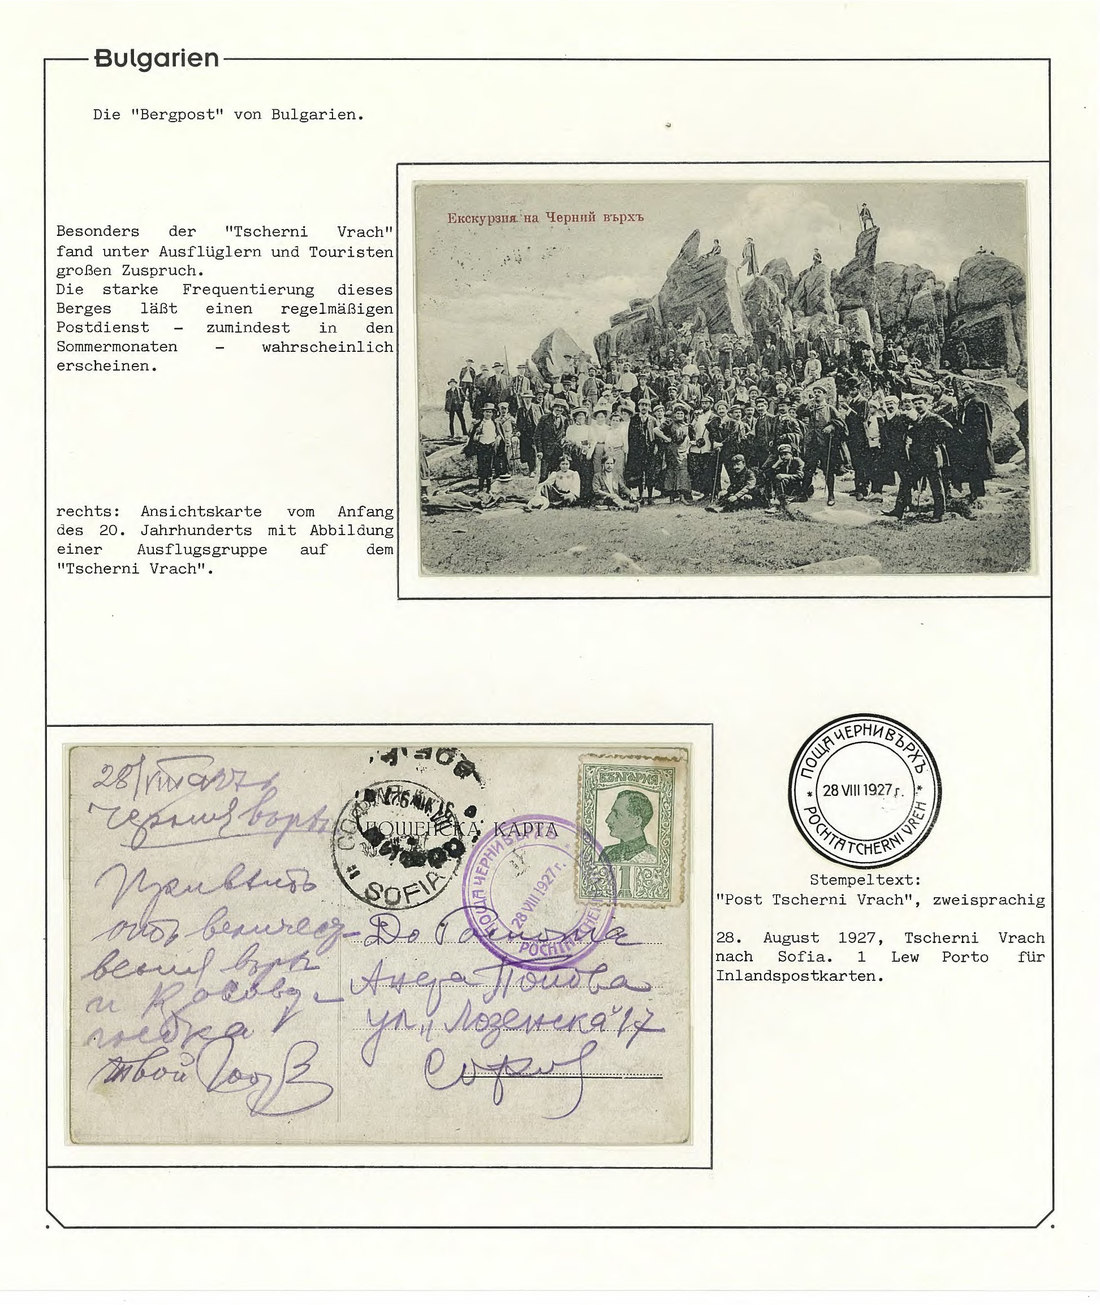 Bulgarien
Die "Bergpost" von Bulgarien.
Besonders der "Tscherni Vrach"
fand unter Ausflüglern und Touristen
großen Zuspruch.
Die starke Frequentierung dieses
Berges läßt einen regelmäßigen
Postdienst – zumindest in den
Sommermonaten – wahrscheinlich
erscheinen.
Екскурзия на Черний върхъ
rechts: Ansichtskarte vom Anfang
des 20. Jahrhunderts mit Abbildung
einer Ausflugsgruppe auf dem
"Tscherni Vrach".
ПОЩЕНСКА КАРТА
SOFIA
БЪЛГАРИЯ
1
ПОЩА ЧЕРНИ ВЪРХЪ
28 VIII 1927 г.
Черния връхъ
отъ
връхъ
и
твой
До
Попова
ул. "Лозенска" 17
София
ПОЩА ЧЕРНИ ВЪРХЪ
* 28 VIII 1927 г. *
POCHTA TCHERNI VREH
Stempeltext:
"Post Tscherni Vrach", zweisprachig
28. August 1927, Tscherni Vrach
nach Sofia. 1 Lew Porto für
Inlandspostkarten.